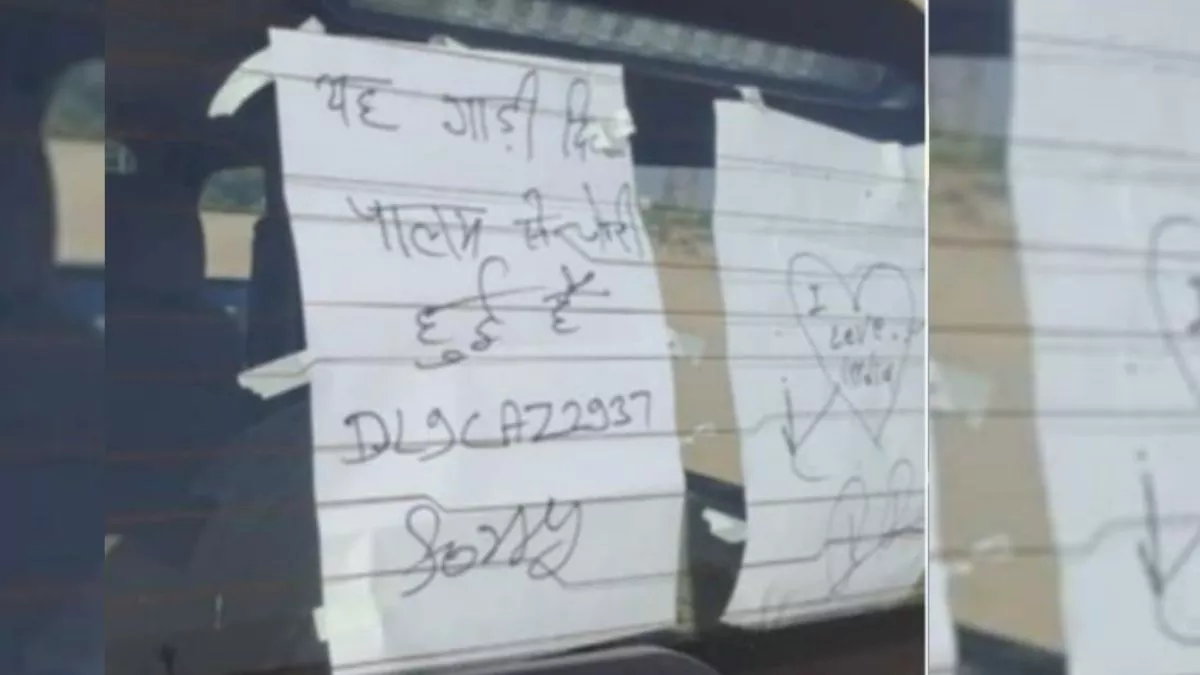 यह गाड़ी
पालम से चोरी
हुई है
DL9CAZ2937
Sorry
I
Love
India